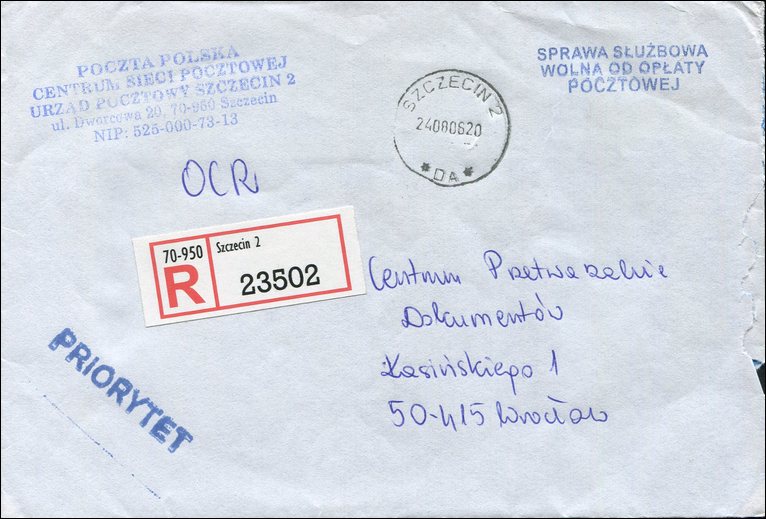 POCZTA POLSKA
CENTRUM SIECI POCZTOWEJ
URZĄD POCZTOWY SZCZECIN 2
ul. Dworcowa 20, 70-950 Szczecin
NIP: 525-000-73-13
SPRAWA SŁUŻBOWA
WOLNA OD OPŁATY
POCZTOWEJ
SZCZECIN 2
24080620
* DA *
OCR
70-950 Szczecin 2
R 23502
Centrum Przetwarzanie
Dokumentów
Łasińskiego 1
50-415 Wrocław
PRIORYTET